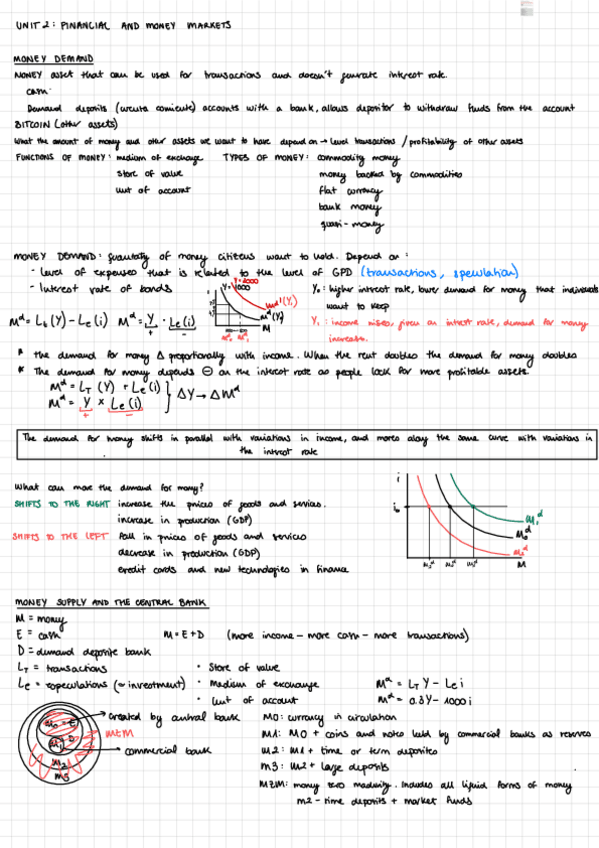 UNIT 2: FINANCIAL AND MONEY MARKETS
MONEY DEMAND
MONEY asset that can be used for transactions and doesn't generate interest rate.
CASH:
Demand deposits (cuenta corriente) accounts with a bank, allows depositor to withdraw funds from the account
BITCOIN (other assets)
What the amount of money and other assets we want to have depend on → level transactions / profitability of other assets
FUNCTIONS OF MONEY: medium of exchange TYPES OF MONEY: commodity money
store of value money backed by commodities
unit of account fiat currency
bank money
quasi-money
MONEY DEMAND: quantity of money citizens want to hold. Depend on:
- Level of expenses that is related to the level of GPD (transactions, speculation)
- Interest rate of bonds
Y₀: higher interest rate, lower demand for money that individuals
want to keep
Y₁: income rises, given an interest rate, demand for money
increase.
Mᵈ = Lₜ(Y) - Lₑ(i) Mᵈ = Y · Lₑ(i)
+ -
i
Mᵈ'(Y₁)
Mᵈ(Y₀)
M
* The demand for money Δ proportionally with income. When the rent doubles the demand for money doubles
* The demand for money depends ⊖ on the interest rate as people look for more profitable assets.
Mᵈ = L_T (Y) + Lₑ(i)
Mᵈ = Y × Lₑ(i) } ΔY → ΔMᵈ
+ -
The demand for money shifts in parallel with variations in income, and moves along the same curve with variations in
the interest rate
What can move the demand for money?
SHIFTS TO THE RIGHT increase the prices of goods and services.
increase in production (GDP)
SHIFTS TO THE LEFT fall in prices of goods and services
decrease in production (GDP)
credit cards and new technologies in finance
i
i₀
M₁ᵈ
M₀ᵈ
M₂ᵈ
M
MONEY SUPPLY AND THE CENTRAL BANK
M = money
E = cash M = E + D (more income - more cash - more transactions)
D = demand deposits bank
L_T = transactions · Store of value
Lₑ = speculations (~ investment) · Medium of exchange Mᵈ = L_T Y - Lₑ i
· Unit of account Mᵈ = 0.3Y - 1000 i
created by central bank M0: currency in circulation
MZM M1: M0 + coins and notes held by commercial banks as reserves
commercial bank M2: M1 + time or term deposits
M3: M2 + large deposits
M₂
M₃
MZM: money zero maturity. Includes all liquid forms of money
M2 - time deposits + market funds